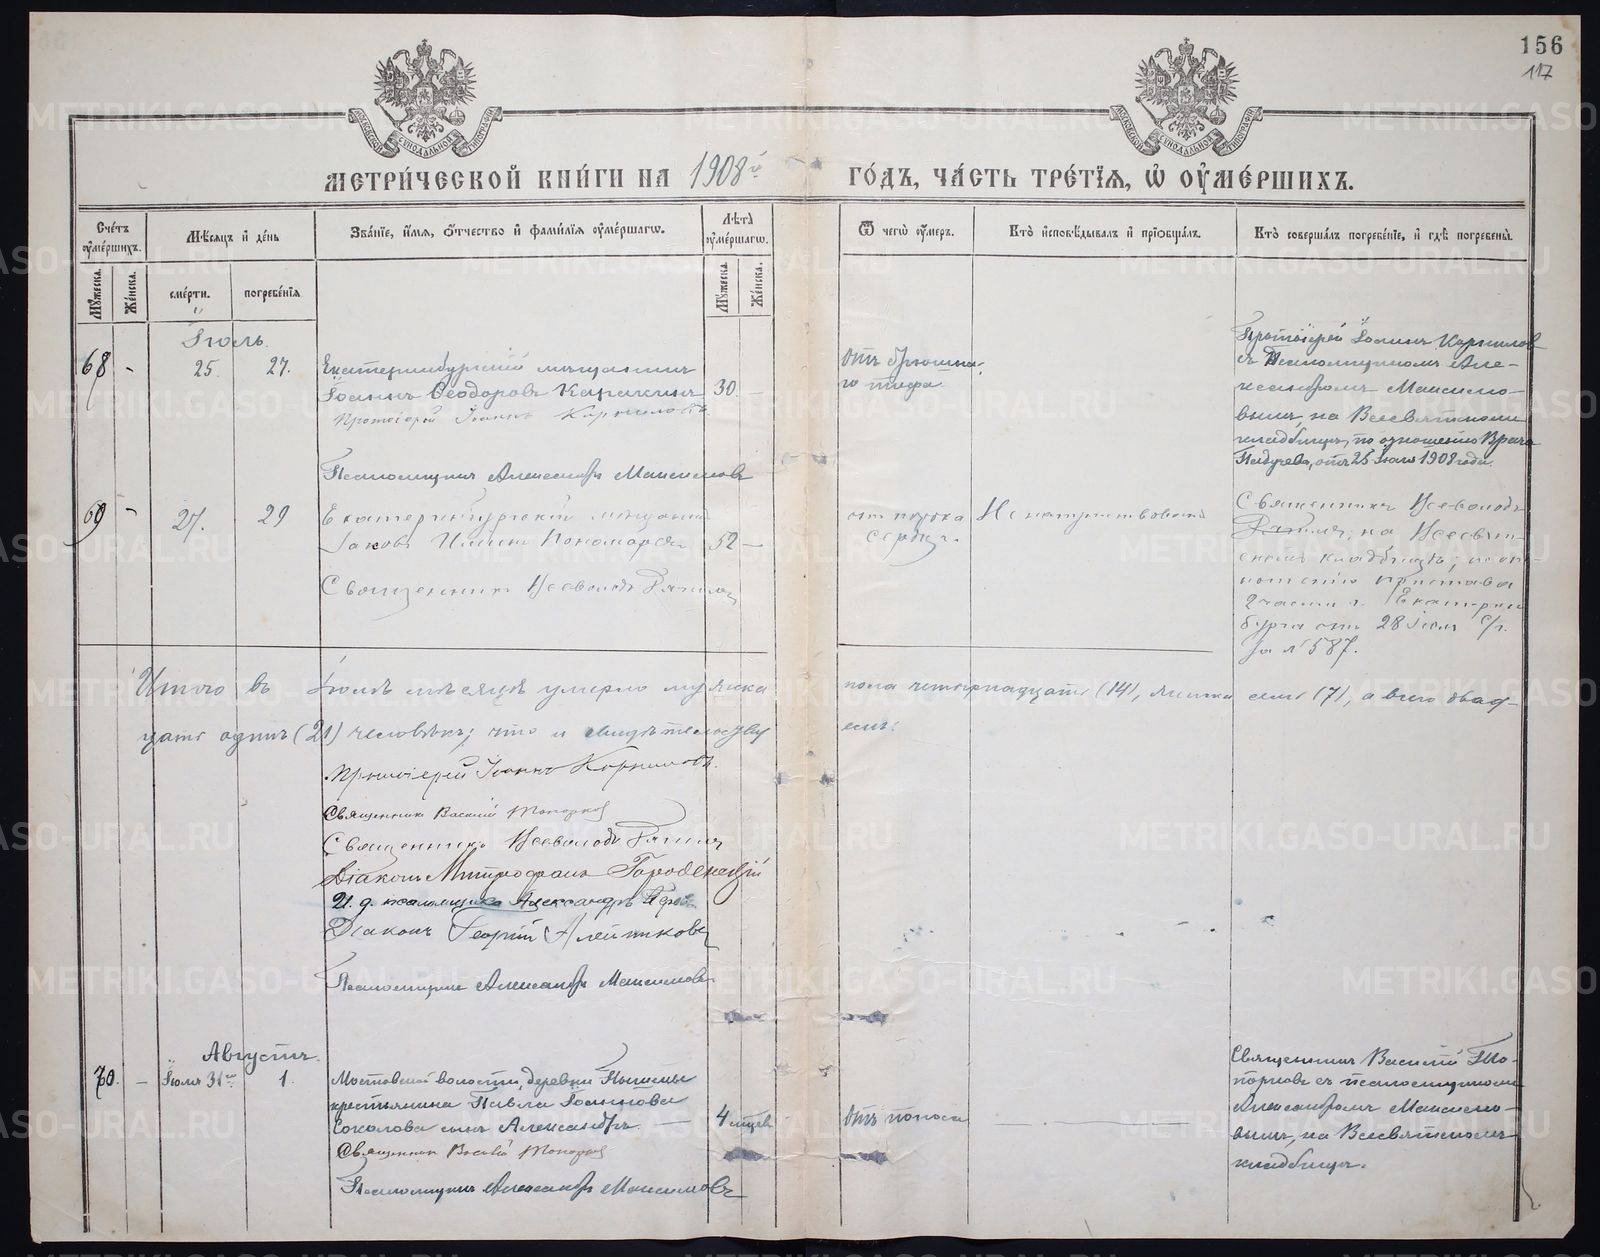 156
117
МЕТРИ́ЧЕСКОЙ КНИ́ГИ НА 1908й ГО́ДЪ, ЧА́СТЬ ТРЕ́ТІЯ, Ѿ ОУМЕ́РШИХЪ.
Сче́тъ оуме́ршихъ.
Мѣ́сяцъ и де́нь
Зва́ніе, и́мя, о́тчество и фами́лія оуме́ршагѡ.
Лѣ́та оуме́ршагѡ.
Ѿ чегѡ̀ оу́меръ.
Кто̀ исповѣ́дывалъ и пріобща́лъ.
Кто̀ соверша́лъ погребе́ніе, и гдѣ̀ погребены̀.
Му́жеска.
Же́нска.
сме́рти.
погребе́нія
Му́жеска
Же́нска.
Іюль.
68 - 25. 27.
Екатеринбургскій мѣщанинъ
Іоаннъ Ѳеодоровъ Каракинъ
30 —
Протоіерей Іоаннъ Корниловъ
Псаломщикъ Александръ Максимовъ
Отъ брюшна-
го тифа.
Протоіерей Іоаннъ Корнилов
съ Псаломщикомъ Але-
ксандромъ Максимо-
вымъ, на Всесвятскомъ
кладбищѣ, по отношенію Врача
отъ 25 Іюля 1908 года.
69 - 27. 29
Екатеринбургскій мѣщанинъ
Іаковъ Пономаревъ
52 —
Священникъ Всеволодъ
отъ порока
сердца.
Не напутствованъ
Священникъ Всеволодъ
на Всесвят-
скомъ кладбищѣ; по от-
ношенію пристава
2 части г. Екатерин
бурга отъ 28 Іюля с/г.
за № 587.
Итого въ Іюлѣ мѣсяцѣ умерло мужска пола четырнадцать (14), женска семь (7), а всего двад-
цать одинъ (21) человѣкъ; что и свидѣтельству емъ:
Протоіерей Іоаннъ Корниловъ.
Священникъ Василій Топорков
Священникъ Всеволодъ
Діаконъ Митрофанъ Городенскій
И. д. псаломщика Александръ
Діаконъ Георгій Алейниковъ
Псаломщикъ Александръ Максимовъ
Августъ.
70. — Іюля 31го 1.
Мостовской волости, деревни Пышмы
крестьянина Павла Іоаннова
Соколова сынъ Александръ —
4 мцев
Священник Василій Топорков
Псаломщикъ Александръ Максимовъ
Отъ поноса
— — —
Священникъ Василій То-
порковъ съ псаломщикомъ
Александромъ Максимо-
вымъ, на Всесвятскомъ
кладбищѣ.
METRIKI.GASO-URAL.RU